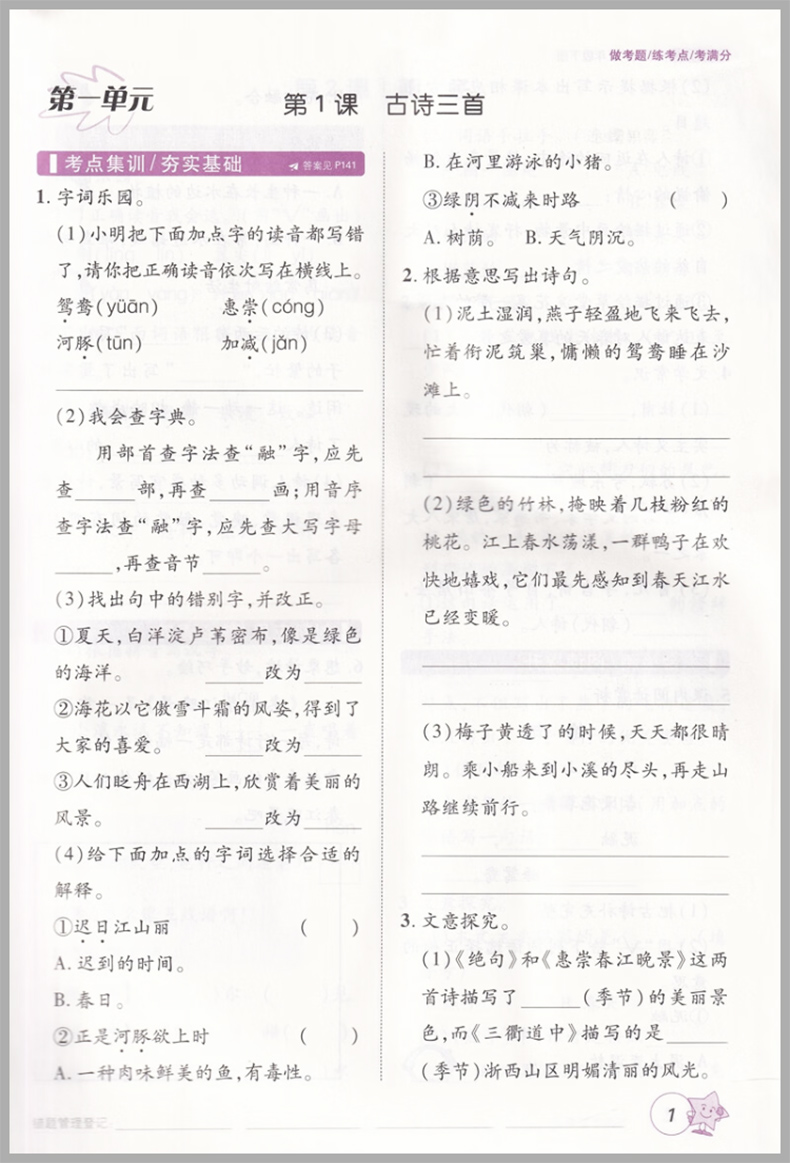 做考题/练考点/考满分
第一单元
第1课 古诗三首
考点集训/夯实基础 答案见P141
1. 字词乐园。
(1)小明把下面加点字的读音都写错
了,请你把正确读音依次写在横线上。
鸳鸯(yüān) 惠崇(cóng)
河豚(tūn) 加减(jǎn)
(2)我会查字典。
用部首查字法查“融”字,应先
查______部,再查______画;用音序
查字法查“融”字,应先查大写字母
______,再查音节______。
(3)找出句中的错别字,并改正。
①夏天,白洋淀户苇密布,像是绿色
的海洋。 ______改为______
②海花以它傲雪斗霜的风姿,得到了
大家的喜爱。 ______改为______
③人们眨舟在西湖上,欣赏着美丽的
风景。 ______改为______
(4)给下面加点的字词选择合适的
解释。
①迟日江山丽 ( )
A. 迟到的时间。
B. 春日。
②正是河豚欲上时 ( )
A. 一种肉味鲜美的鱼,有毒性。
B. 在河里游泳的小猪。
③绿阴不减来时路 ( )
A. 树荫。 B. 天气阴沉。
2. 根据意思写出诗句。
(1)泥土湿润,燕子轻盈地飞来飞去,
忙着衔泥筑巢,慵懒的鸳鸯睡在沙
滩上。
(2)绿色的竹林,掩映着几枝粉红的
桃花。江上春水荡漾,一群鸭子在欢
快地嬉戏,它们最先感知到春天江水
已经变暖。
(3)梅子黄透了的时候,天天都很晴
朗。乘小船来到小溪的尽头,再走山
路继续前行。
3. 文意探究。
(1)《绝句》和《惠崇春江晚景》这两
首诗描写了______(季节)的美丽景
色,而《三衢道中》描写的是______
(季节)浙西山区明媚清丽的风光。
错题管理登记:
1